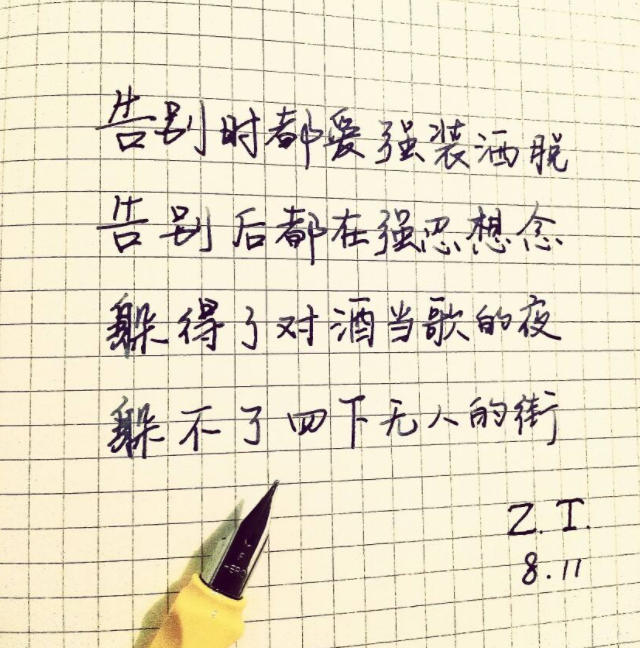 告别时都爱强装洒脱
告别后都在强忍想念
躲得了对酒当歌的夜
躲不了四下无人的街
Z.T.
8.11
HERO